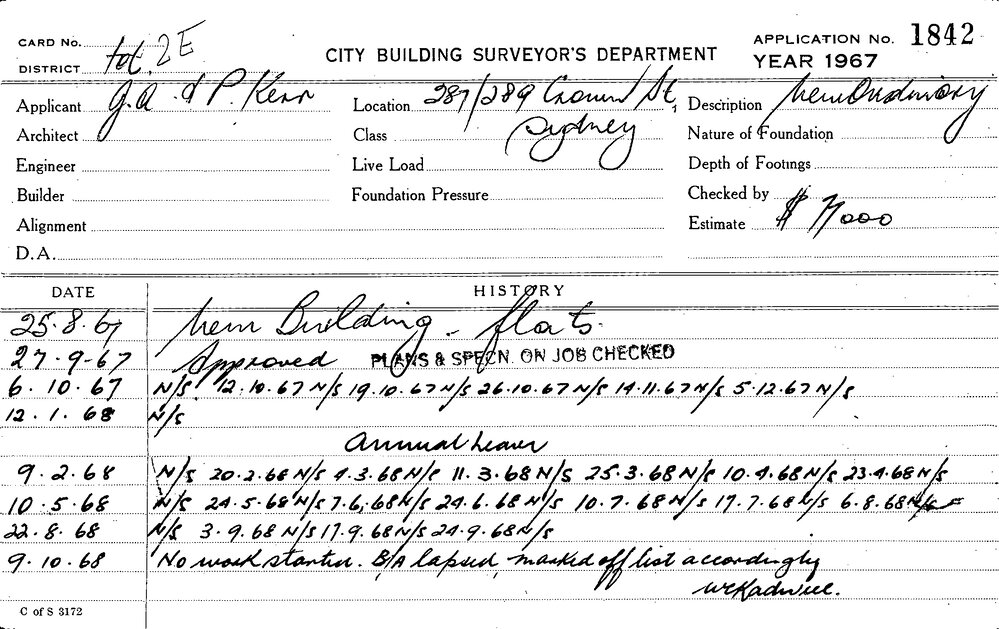 CARD No.
DISTRICT tot. 2E
CITY BUILDING SURVEYOR'S DEPARTMENT
APPLICATION No. 1842
YEAR 1967
Applicant J.A. & P. Kerr
Location 287/289 Crown St,
Description New Ordinary
Architect
Class Sydney
Nature of Foundation
Engineer
Live Load
Depth of Footings
Builder
Foundation Pressure
Checked by
Alignment
Estimate $ 7000
D.A.
DATE HISTORY
25.8.67 New Building - flats.
27-9-67 Approved PLANS & SPECN. ON JOB CHECKED
6.10.67 N/S 12.10.67 N/S 19.10.67 N/S 26.10.67 N/S 14.11.67 N/S 5.12.67 N/S
12.1.68 N/S
Annual Leave
9.2.68 N/S 20.2.68 N/S 4.3.68 N/S 11.3.68 N/S 25.3.68 N/S 10.4.68 N/S 23.4.68 N/S
10.5.68 N/S 24.5.68 N/S 7.6.68 N/S 24.6.68 N/S 10.7.68 N/S 17.7.68 N/S 6.8.68 N/S
22.8.68 N/S 3.9.68 N/S 17.9.68 N/S 24.9.68 N/S
9.10.68 No work started. B/A lapsed, marked off list accordingly
C of S 3172